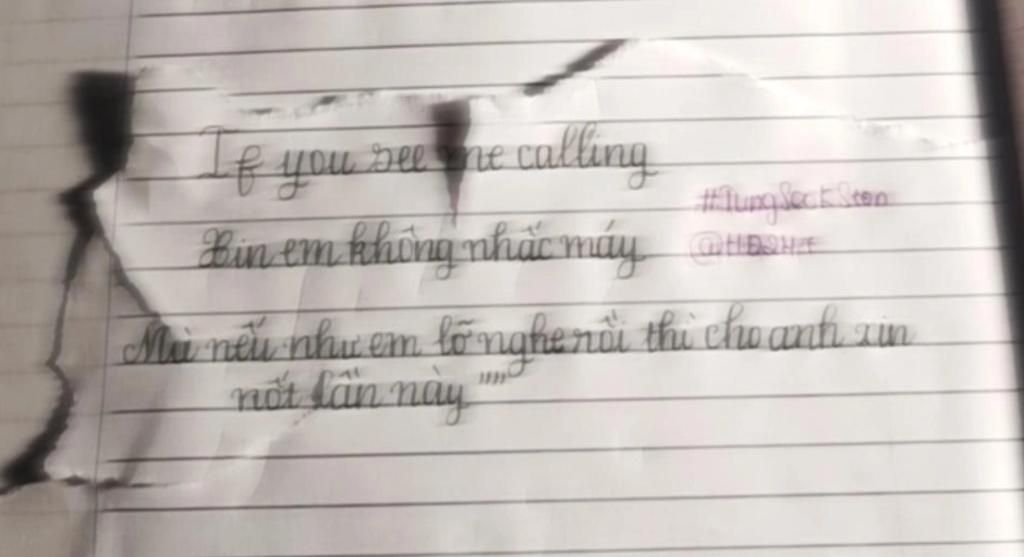 If you see me calling
Xin em không nhấc máy
Mà nếu như em lỡ nghe rồi thì cho anh xin
nốt lần này """